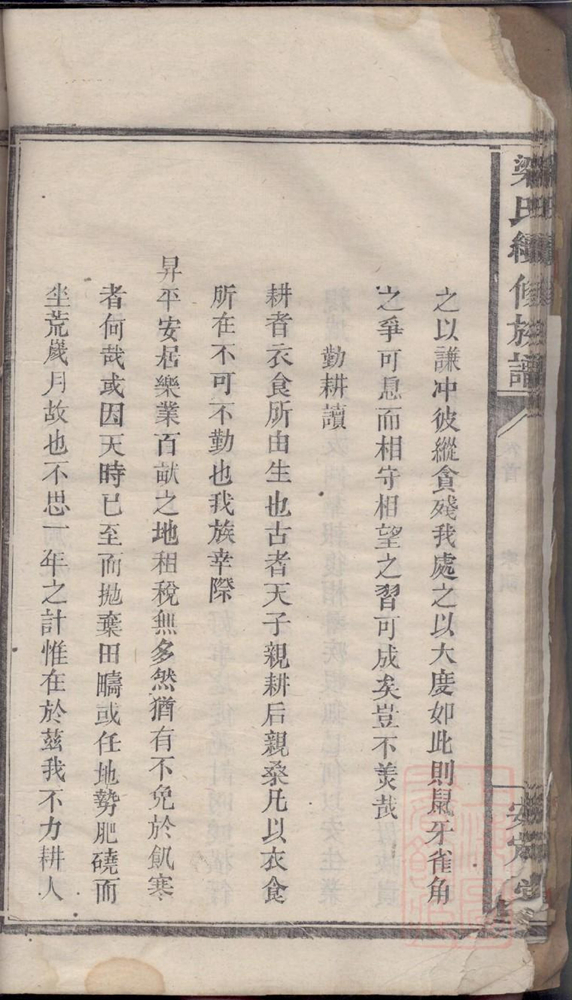 梁氏續修族譜
之以謙冲彼縱貪殘我處之以大度如此則鼠牙雀角
之爭可息而相守相望之習可成矣豈不美哉
勤耕讀
耕者衣食所由生也古者天子親耕后親桑凡以衣食
所在不可不勤也我族幸際
昇平安居樂業百畝之地租稅無多然猶有不免於飢寒
者何哉或因天時已至而拋棄田疇或任地勢肥磽而
坐荒歲月故也不思一年之計惟在於茲我不力耕人